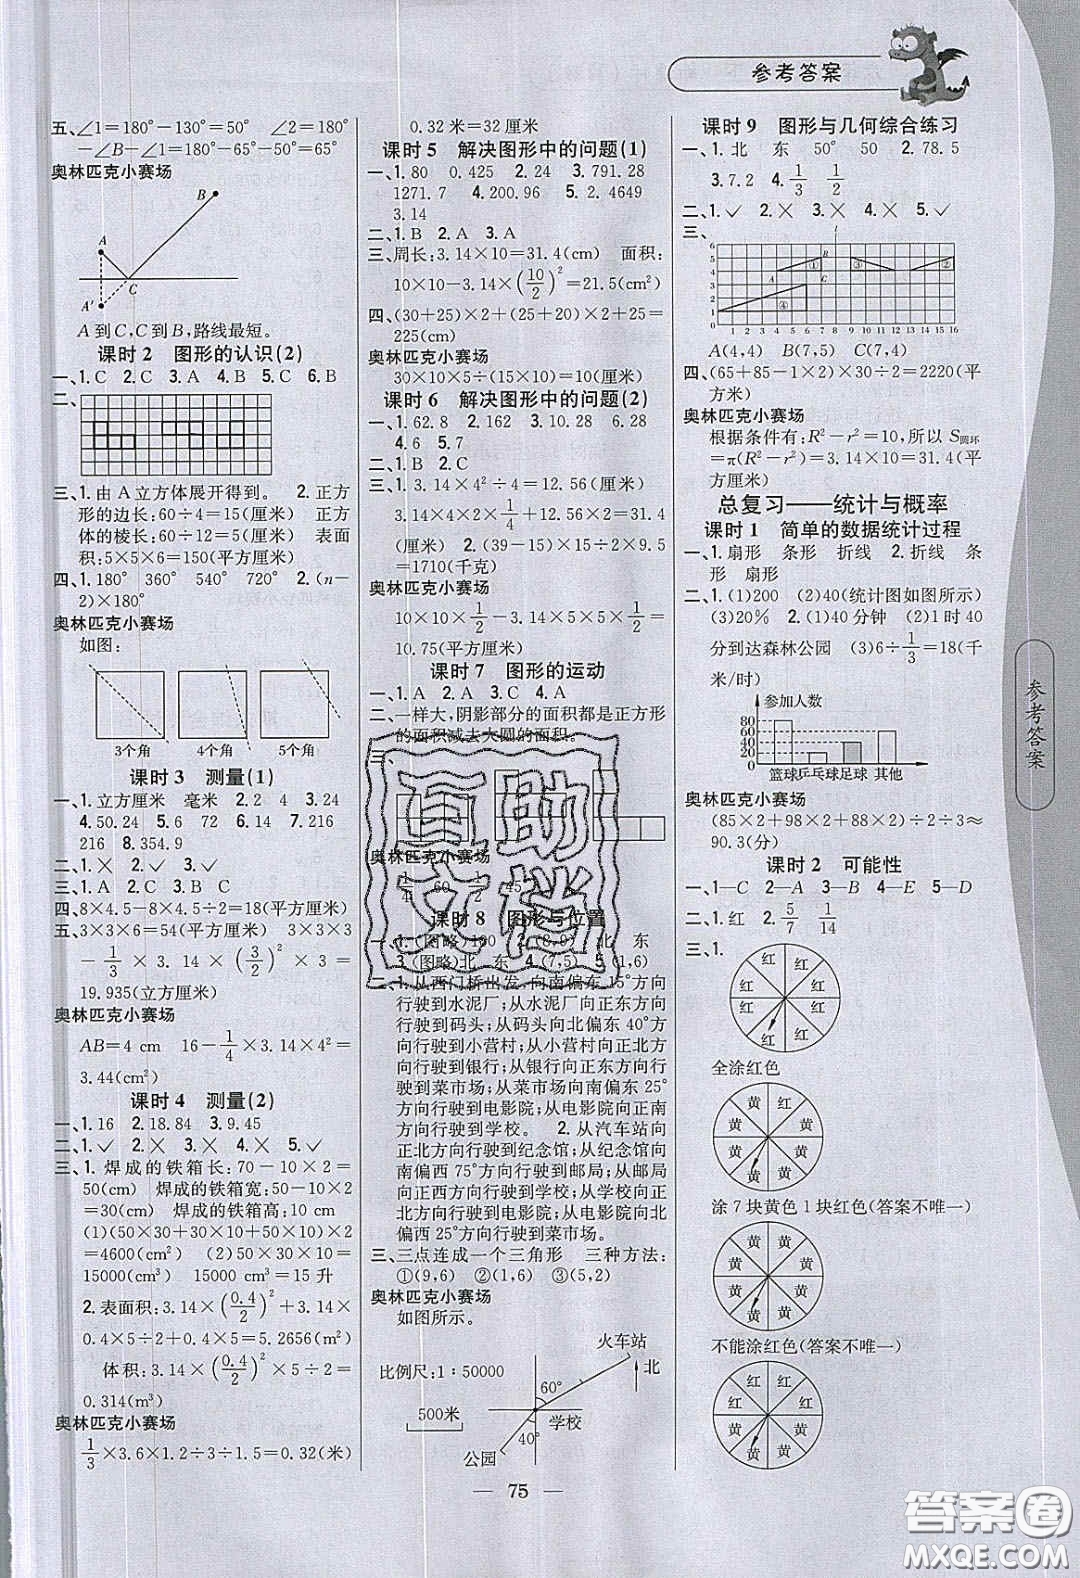 参考答案
五、∠1=180°-130°=50° ∠2=180°
-∠B-∠1=180°-65°-50°=65°
奥林匹克小赛场
B
A
A′
C
A到C,C到B,路线最短。
课时2 图形的认识(2)
一、1.C 2.C 3.A 4.B 5.C 6.B
二、
三、1.由A立方体展开得到。 2.正方
形的边长:60÷4=15(厘米) 正方
体的棱长:60÷12=5(厘米) 表面
积:5×5×6=150(平方厘米)
四、1.180° 360° 540° 720° 2.(n-
2)×180°
奥林匹克小赛场
如图:
3个角 4个角 5个角
课时3 测量(1)
一、1.立方厘米 毫米 2.2 4 3.24
4.50.24 5.6 72 6.14 7.216
216 8.354.9
二、1.× 2.✓ 3.✓
三、1.A 2.C 3.B C
四、8×4.5-8×4.5÷2=18(平方厘米)
五、3×3×6=54(平方厘米) 3×3×3
-1/3×3×3.14×(3/2)²×3=
19.935(立方厘米)
奥林匹克小赛场
AB=4 cm 16-1/4×3.14×4²=
3.44(cm²)
课时4 测量(2)
一、1.16 2.18.84 3.9.45
二、1.✓ 2.× 3.× 4.× 5.✓
三、1.焊成的铁箱长:70-10×2=
50(cm) 焊成的铁箱宽:50-10×2
=30(cm) 焊成的铁箱高:10 cm
(1)(50×30+30×10+50×10)×
2=4600(cm²) (2)50×30×10=
15000(cm³) 15000(cm³)=15升
2.表面积:3.14×(0.4/2)²+3.14×
0.4×5÷2+0.4×5=5.2656(m²)
体积:3.14×(0.4/2)²×5÷2=
0.314(m³)
奥林匹克小赛场
1/3×3.6×1.2÷3÷1.5=0.32(米)
0.32米=32厘米
课时5 解决图形中的问题(1)
一、1.80 0.425 2.24 3.791.28
1271.7 4.200.96 5.2.4649
3.14
二、1.B 2.A 3.A
三、周长:3.14×10=31.4(cm) 面积:
10×10-3.14×(10/2)²=21.5(cm²)
四、(30+25)×2+(25+10)×2+45=
225(cm)
奥林匹克小赛场
30×10×5÷(15×10)=10(厘米)
课时6 解决图形中的问题(2)
一、1.62.8 2.162 3.10.28 6.28
4.6 5.7
二、1.A 2.B 2.C
三、1.3.14×4²÷4=12.56(厘米)
3.14×4×2×1/4+12.56×2=31.4
(厘米) 2.(39-15)×15÷2×9.5
=1710(千克)
奥林匹克小赛场
10×10×1/2-3.14×5×5×1/2=
10.75(平方厘米)
课时7 图形的运动
一、1.A 2.A 3.C 4.A
二、一样大,阴影部分的面积都是正方形
的面积减去大圆的面积。
三、
奥林匹克小赛场
课时8 图形与位置
一、1.(图略)100 2.(8,9) 3.北 东
3.(图略)北 东 4.(7,5) 5.(1,6)
二、1.从西门桥出发,向南偏东70°方向
行驶到水泥厂;从水泥厂向正东方向
行驶到码头;从码头向北偏东40°方向
行驶到小营村;从小营村向正北方向
行驶到银行;从银行向正东方向行驶
到菜市场;从菜市场向南偏东25°方向
行驶到电影院;从电影院向正南
方向行驶到学校。 2.从汽车站向
正东方向行驶到纪念馆;从纪念馆向
南偏西75°方向行驶到邮局;从邮局向
正西方向行驶到学校;从学校向正北
方向行驶到电影院;从电影院向
北偏西25°方向行驶到菜市场。
三、三点连成一个三角形 三种方法:
①(9,6) ②(1,6) ③(5,2)
奥林匹克小赛场
如图所示。
火车站
北
比例尺:1∶50000
60°
500米
学校
40°
公园
课时9 图形与几何综合练习
一、1.北 东 50° 50 2.78.5
3.7.2 4.1/3 1/2
二、1.✓ 2.× 3.× 4.× 5.✓
三、
6 5 4 3 2 1 0
l
B A C
① ③ ② ④
1 2 3 4 5 6 7 8 9 10 11 12 13 14 15 16
A(4,4) B(7,5)
四、(65+85-1×2)×30÷2=2220(平
方米)
奥林匹克小赛场
根据条件有:R²-r²=10,所以S圆环
=π(R²-r²)=3.14×10=31.4(平
方厘米)
总复习——统计与概率
课时1 简单的数据统计过程
一、1.扇形 条形 折线 2.折线 条
形 扇形
二、1.(1)200 (2)40(统计图如图所示)
(3)20% 2.(1)40分钟 (2)1时40
分到达森林公园 (3)6÷1/3=18(千
米/时)
参加人数
80 60 40 20 0
篮球 乒乓球 足球 其他
奥林匹克小赛场
(85×2+98×2+88×2)÷2÷3≈
90.3(分)
课时2 可能性
一、1—C 2—A 3—B 4—D 5—D
二、1.红 2.5/7 1/14
三、1.
红 红 红 红 红 红 红 红
全涂红色
黄 红 黄 黄 黄 黄 黄 黄
涂7块黄色1块红色(答案不唯一)
黄 黄 黄 黄 黄 黄 黄 黄
不能涂红色(答案不唯一)
红 红 红 红 黄 黄 黄 黄
参考答案
互助文档
75
答案圈
MXQE.COM